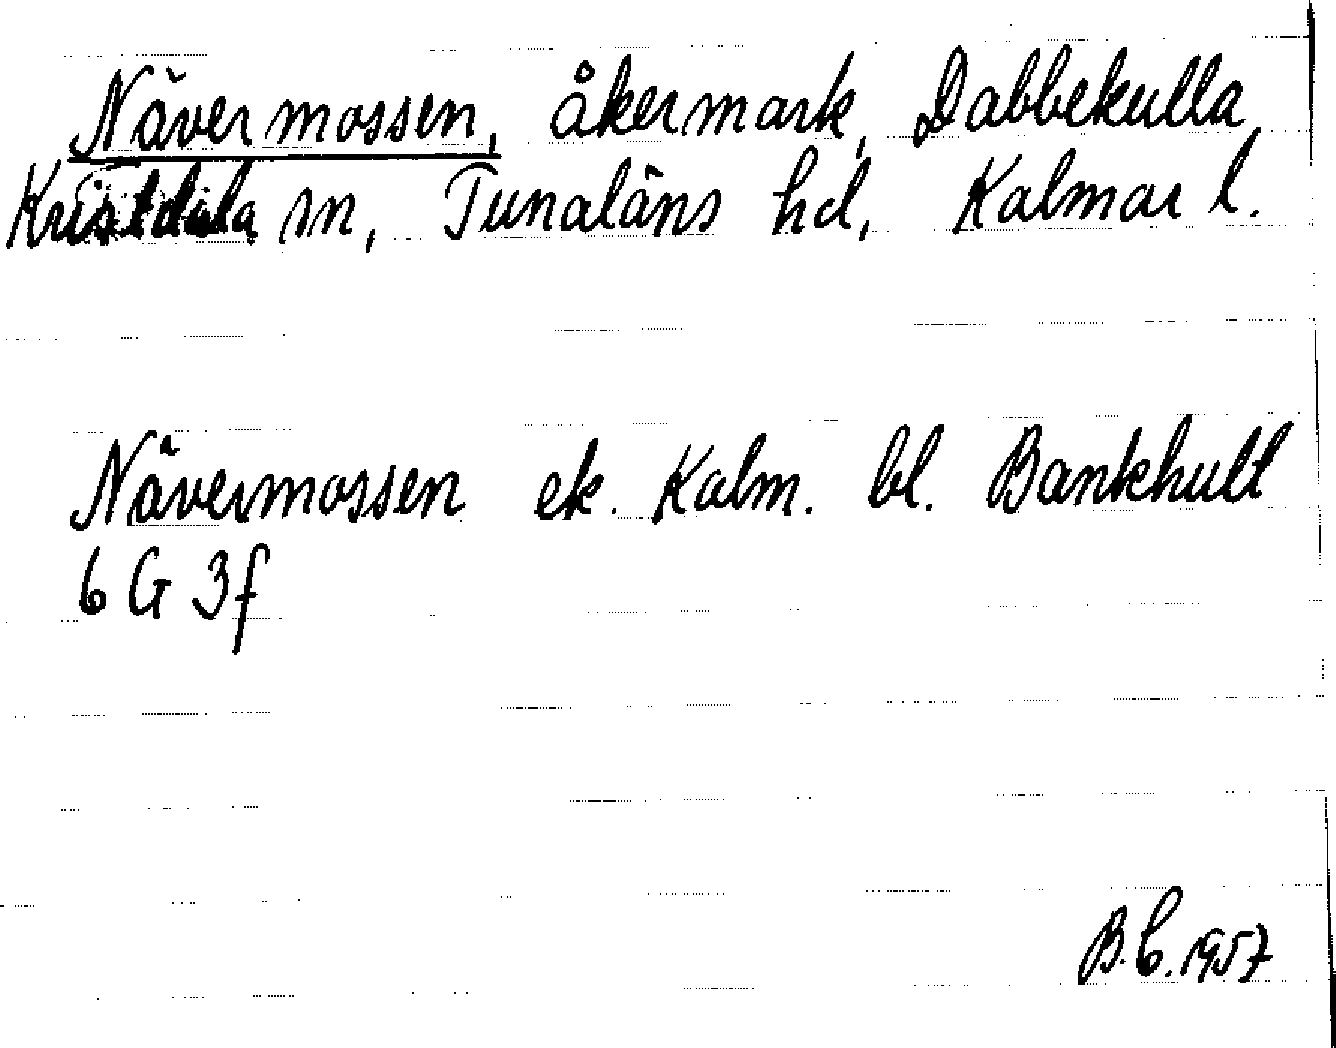 Nävermossen, åkermark, Dabbekulla,
Kristdala sn, Tunaläns hd, Kalmar l.
Nävermossen ek. Kalm. bl. Bankhult
6 G 3f
B.C. 1957